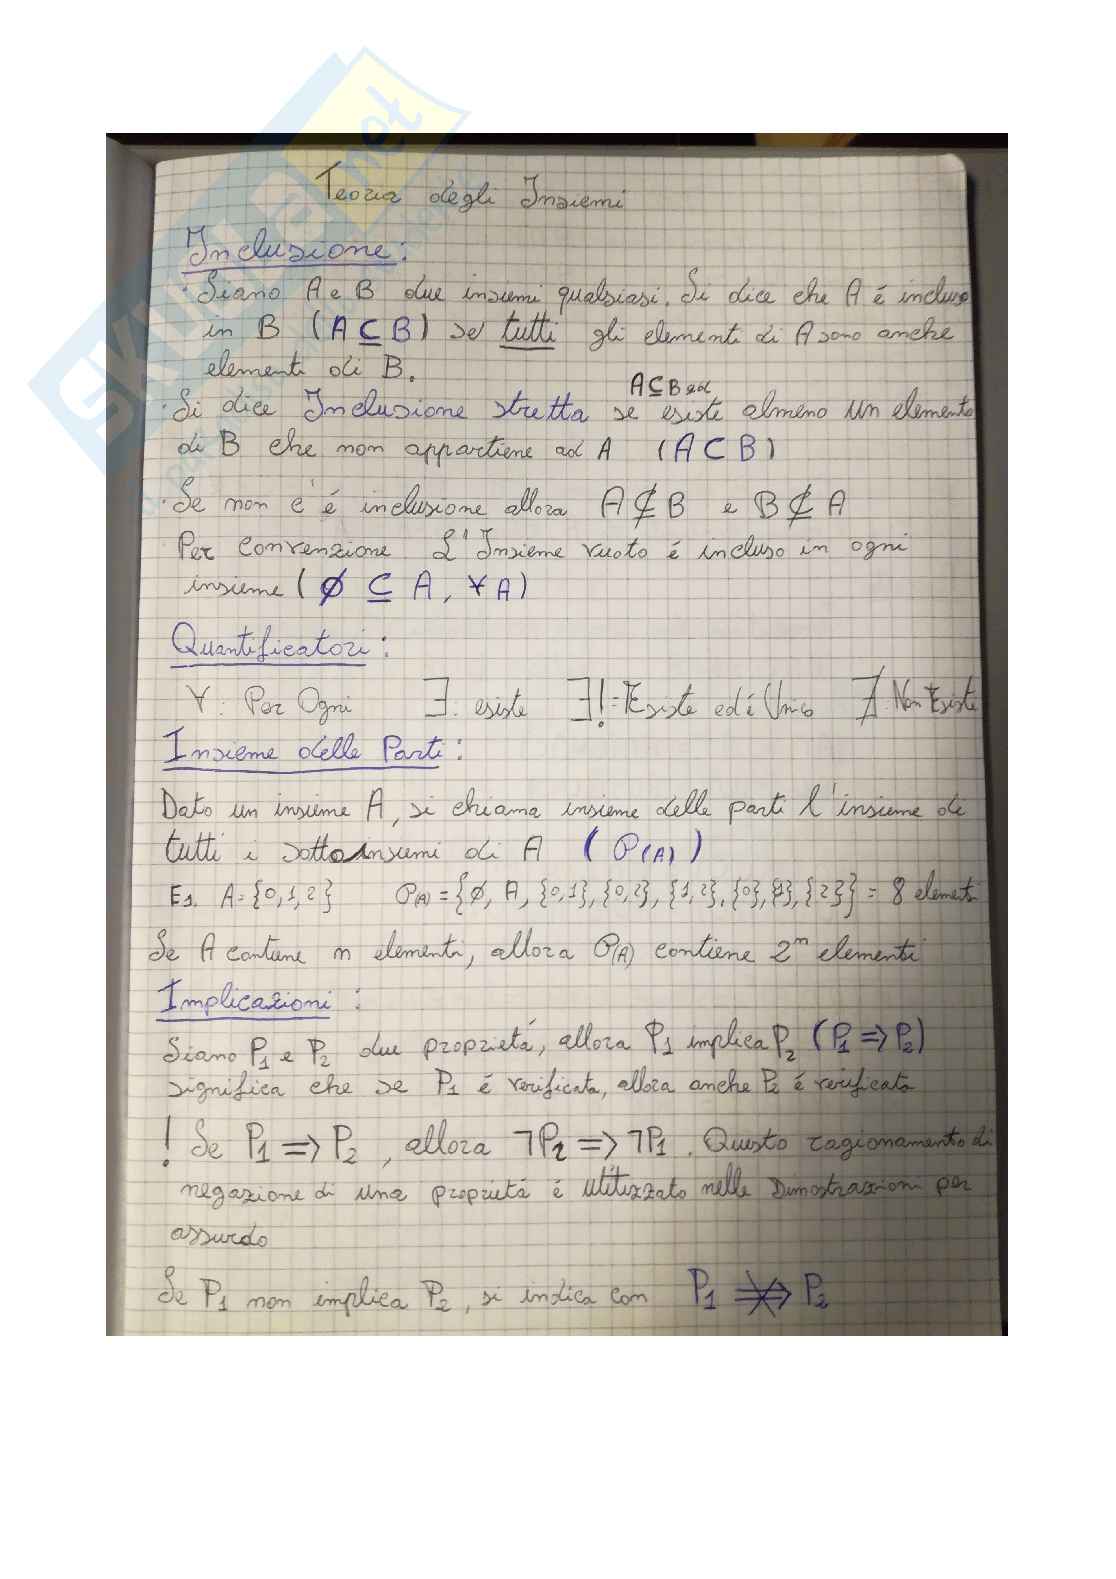 Teoria degli Insiemi
Inclusione:
· Siano A e B due insiemi qualsiasi. Si dice che A é incluso
in B (A ⊆ B) se tutti gli elementi di A sono anche
elementi di B.
A⊆B ed
· Si dice Inclusione stretta se esiste almeno un elemento
di B che non appartiene ad A (A ⊂ B)
· Se non c'é inclusione allora A ⊈ B e B ⊈ A
Per convenzione L'Insieme vuoto é incluso in ogni
insieme (∅ ⊆ A, ∀A)
Quantificatori:
∀: Per Ogni ∃: esiste ∃!= Esiste ed é Unico ∄: Non Esiste
Insieme delle Parti:
Dato un insieme A, si chiama insieme delle parti l'insieme di
tutti i sottoinsiemi di A (P(A))
Es. A={0,1,2} P(A)={∅, A, {0,1},{0,2},{1,2},{0},{1},{2}} = 8 elementi
Se A contiene n elementi, allora P(A) contiene 2ⁿ elementi
Implicazioni:
Siano P₁ e P₂ due proprietá, allora P₁ implica P₂ (P₁ => P₂)
significa che se P₁ é verificata, allora anche P₂ é verificata
! Se P₁ => P₂, allora ¬P₂ => ¬P₁. Questo ragionamento di
negazione di una proprietá é utilizzato nelle Dimostrazioni per
assurdo
Se P₁ non implica P₂, si indica con P₁ ⇏ P₂
SKUOLA.net